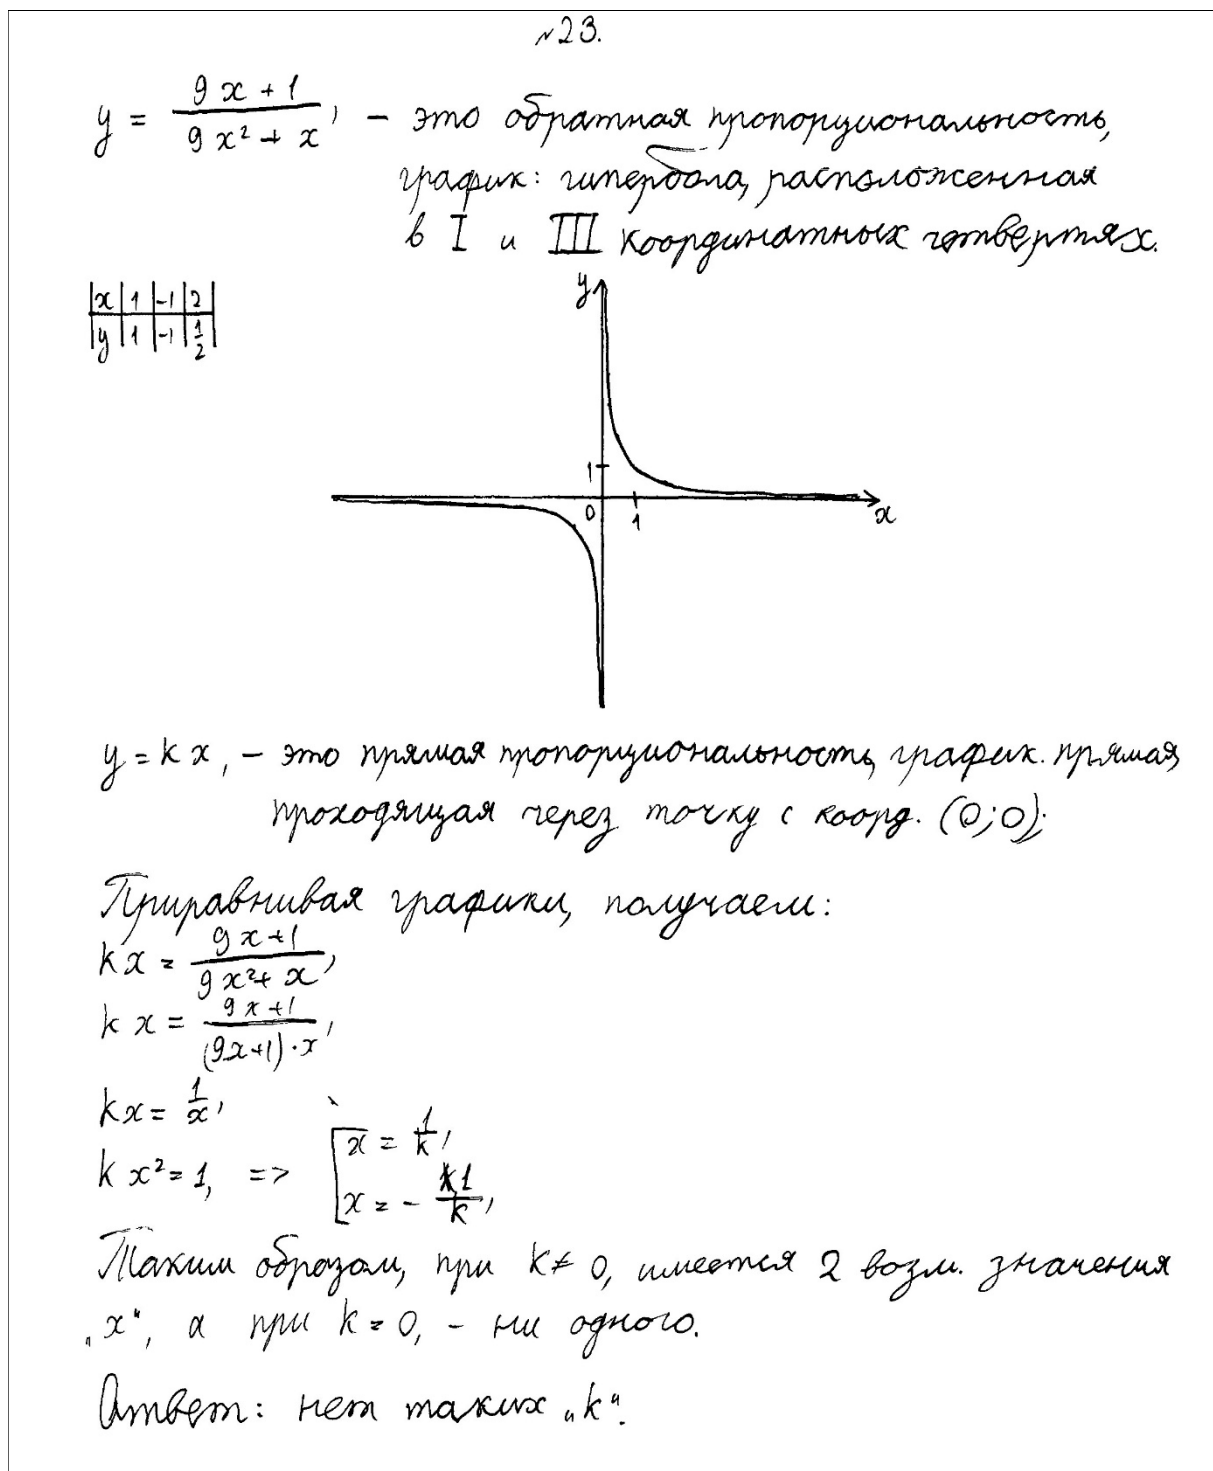 №23.
y = \frac{9x+1}{9x²+x}, – это обратная пропорциональность,
график: гипербола, расположенная
в I и III координатных четвертях.
|x|1|-1|2|
|y|1|-1|\frac{1}{2}|
y
1
0
1
x
y = kx, – это прямая пропорциональность, график. прямая,
проходящая через точку с коорд. (0;0);
Приравнивая графики, получаем:
kx = \frac{9x+1}{9x²+x},
kx = \frac{9x+1}{(9x+1)·x},
kx = \frac{1}{x},
kx² = 1, => [ x = \frac{1}{k},
x = -\frac{1}{k},
Таким образом, при k≠0, имеется 2 возм. значения
„x“, а при k=0, – ни одного.
Ответ: нет таких „k“.